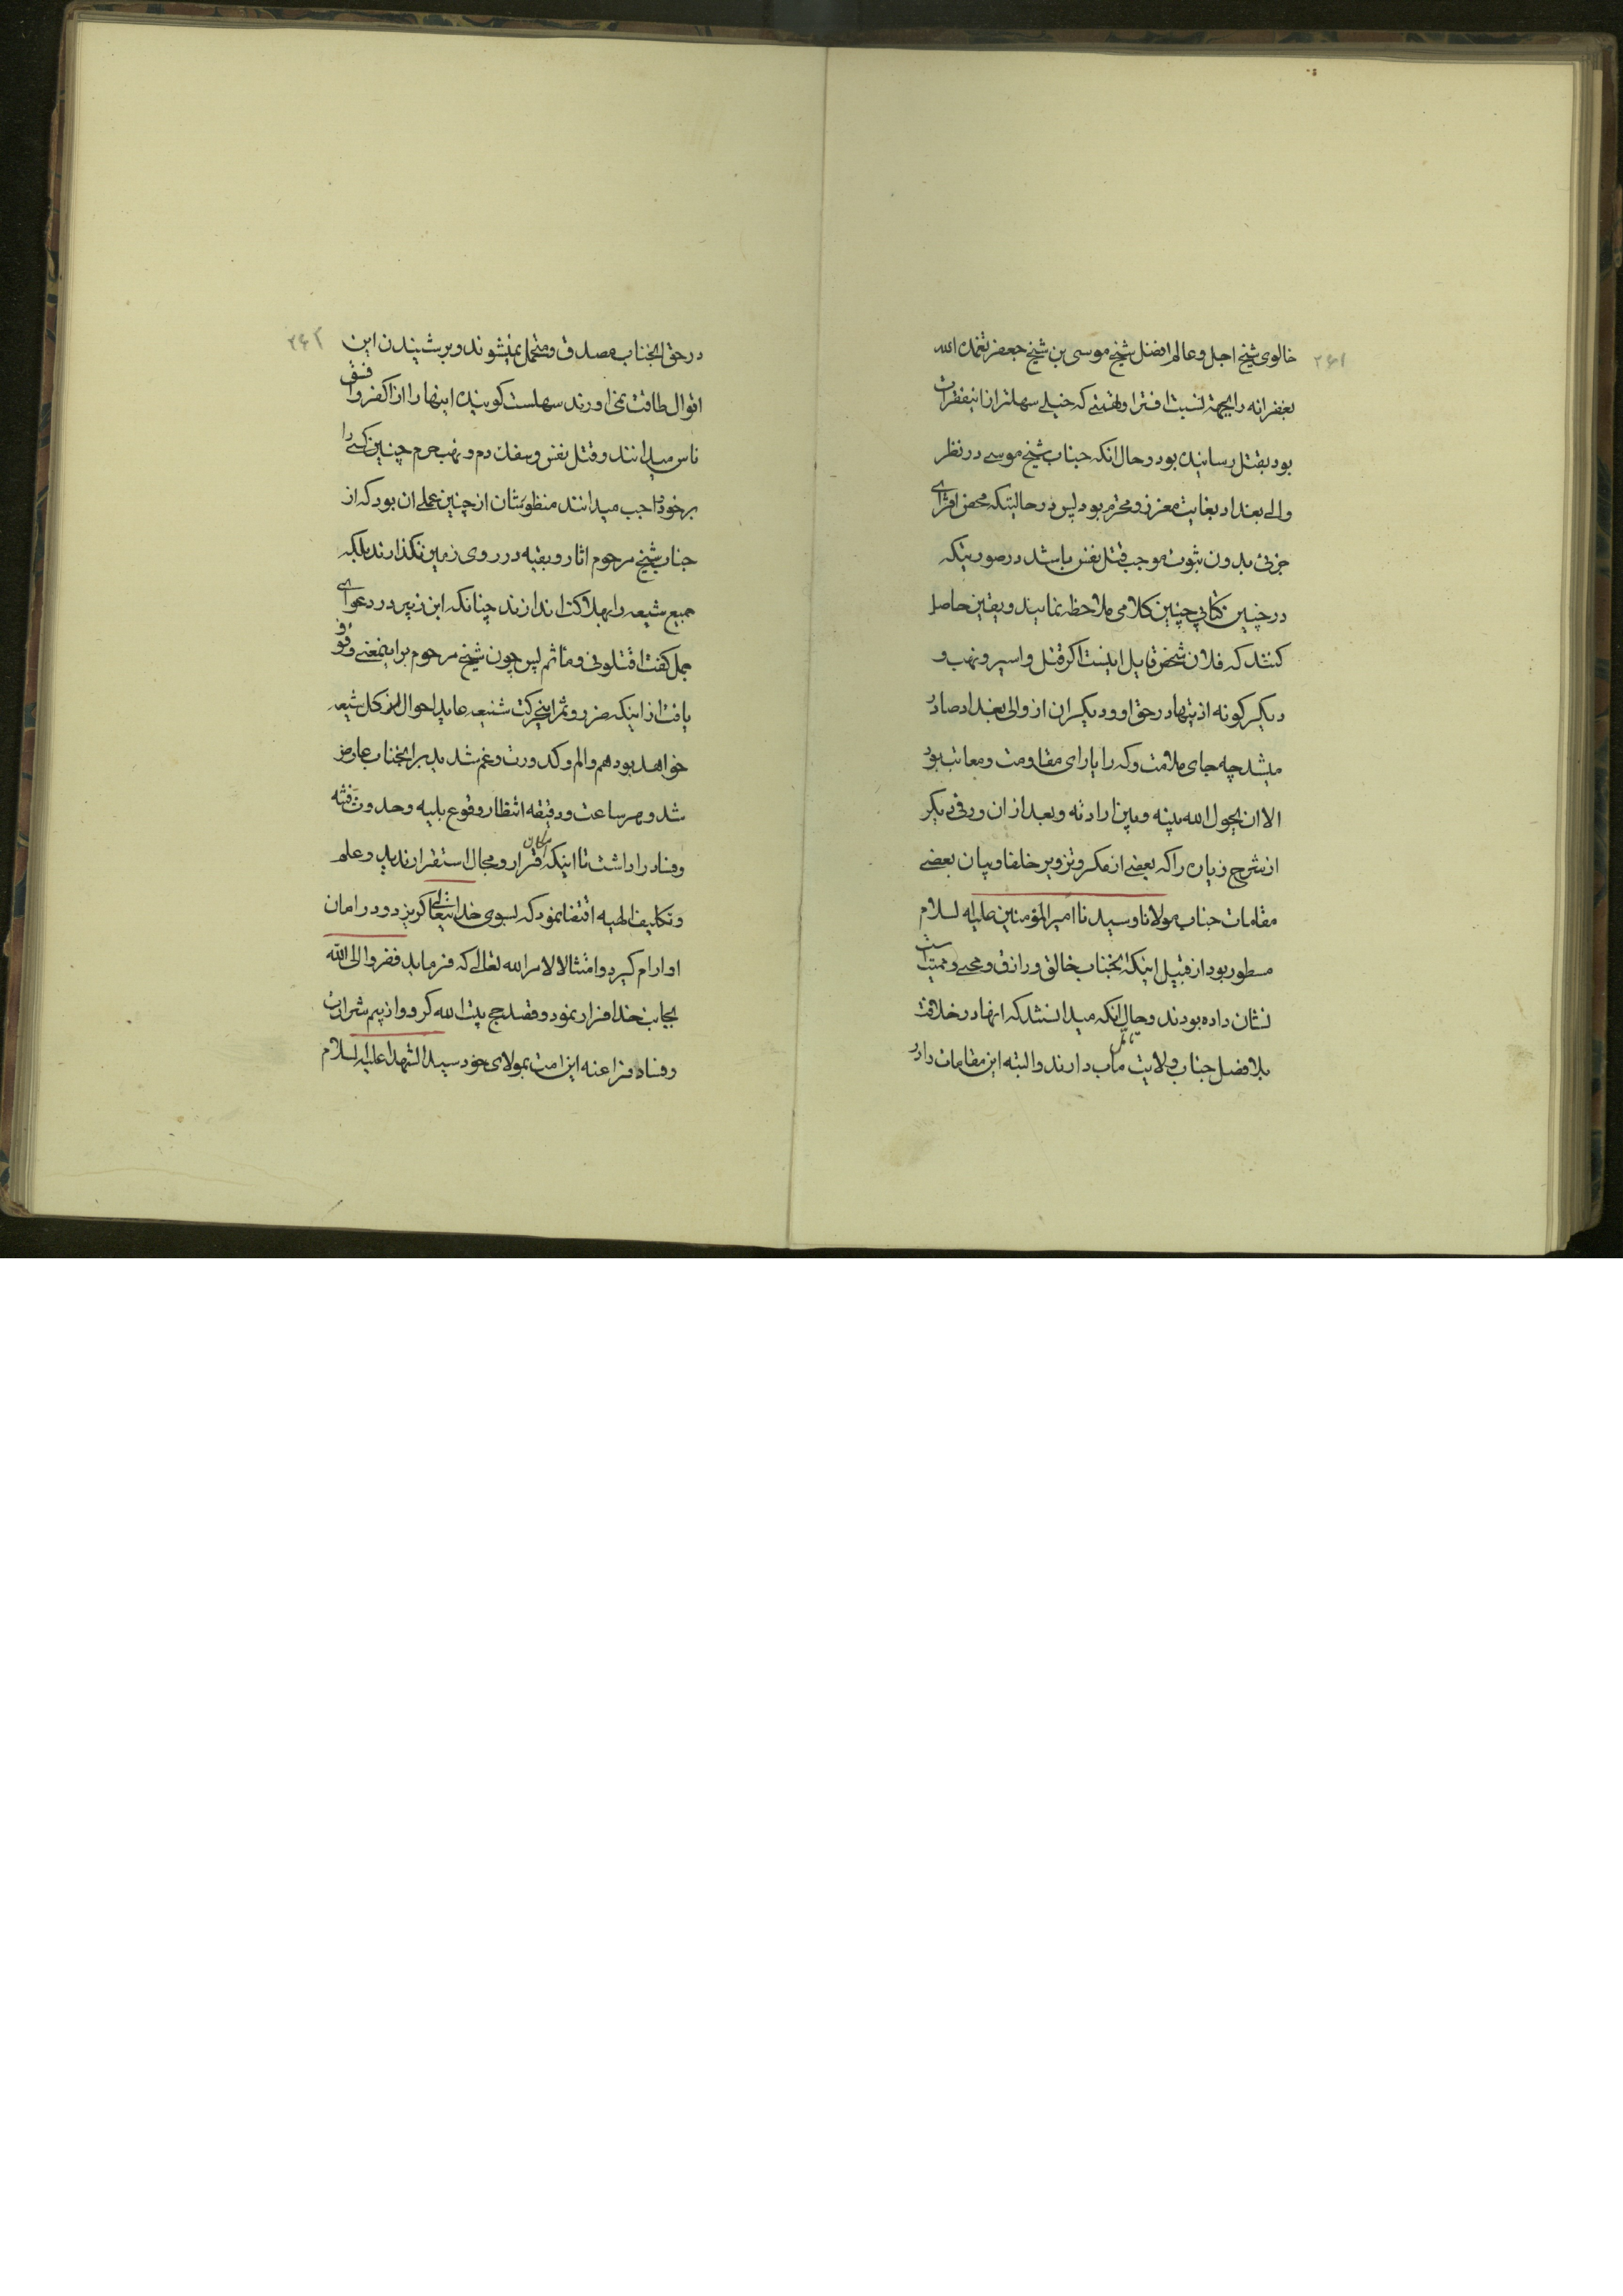 ۲۶۱
خالوی شیخ اجل و عالم افضل شیخ موسی بن شیخ جعفر تغمده الله
بغفرانه را بجهة نسبت افترا و تهمتی که خیلی سهلتر از اینفقرات
بود بقتل رسانیده بود و حال انکه جناب شیخ موسی در نظر
والی بغداد بغایت معزز و محترم بود پس در حالتیکه محض افترای
جزئی بدون ثبوت موجب قتل نفس باشد در صورتیکه
در چنین کتابی چنین کلامی ملاحظه نمایند و یقین حاصل
کنند که فلان شخص قایل اینست اکر قتل و اسیر و نهب و
دیکر کونه اذیتها در حق او و دیکران از والی بغداد صادر
میشد چه جای ملامت و که را یارای مقاومت و معاتب بود
الا ان یحول الله بینه و بین ارادته و بعد از ان ورقی دیکر
از شرح زیاره را که بعضی از مکر و تزویر خلفا و بیان بعضی
مقامات جناب مولانا و سیدنا امیر المؤمنین علیه السلام
مسطور بود از قبیل اینکه انجناب خالق و رازق و محیی و ممیت است
نشان داده بودند و حال انکه میدانستند که انها در خلافت
بلا فضل جناب ولایت ماب دارند و البته این مقامات را در
۲۶۲
در حق انجناب مصدق و متحمل نمیشوند و بر شنیدن این
اقوال طاقت نمی اورند سهلست کوینده اینها را از اکفر و افسق
ناس میدانند و قتل نفس و سفک دم و نهب حرم چنین کسی را
بر خود واجب میدانند منظورشان از چنین عملی ان بود که از
جناب شیخ مرحوم اثار و بقیه در روی زمین نکذارند بلکه
جمیع شیعه را بهلاکت اندازند چنانکه ابن زبیر در دعوای
جمل کفت اقتلونی و ما ثم پس چون شیخ مرحوم بر اینمعنی وقوف
یافت از اینکه ضرر و شر اینحرکت شنیعه عاید احوال کل شیعه
خواهد بود هم و الم و کدورت و غم شدید بر انجناب عارض
شد و هر ساعت و دقیقه انتظار وقوع بلیه و حدوث فتنه
و فساد را داشت تا اینکه قرار و مجال استقرار ندید و علم
و تکالیف الهیه اقتضا نمود که بسوی خدایتعالی کریزد و در امان
او ارام کیرد و امتثالا لامر الله تعالی که فرماید ففروا الی الله
بجانب خدا فرار نمود و قصد حج بیت الله کرد و از بیم شرارت
و فساد فراعنه این امت بمولای خود سید الشهدا علیه السلام